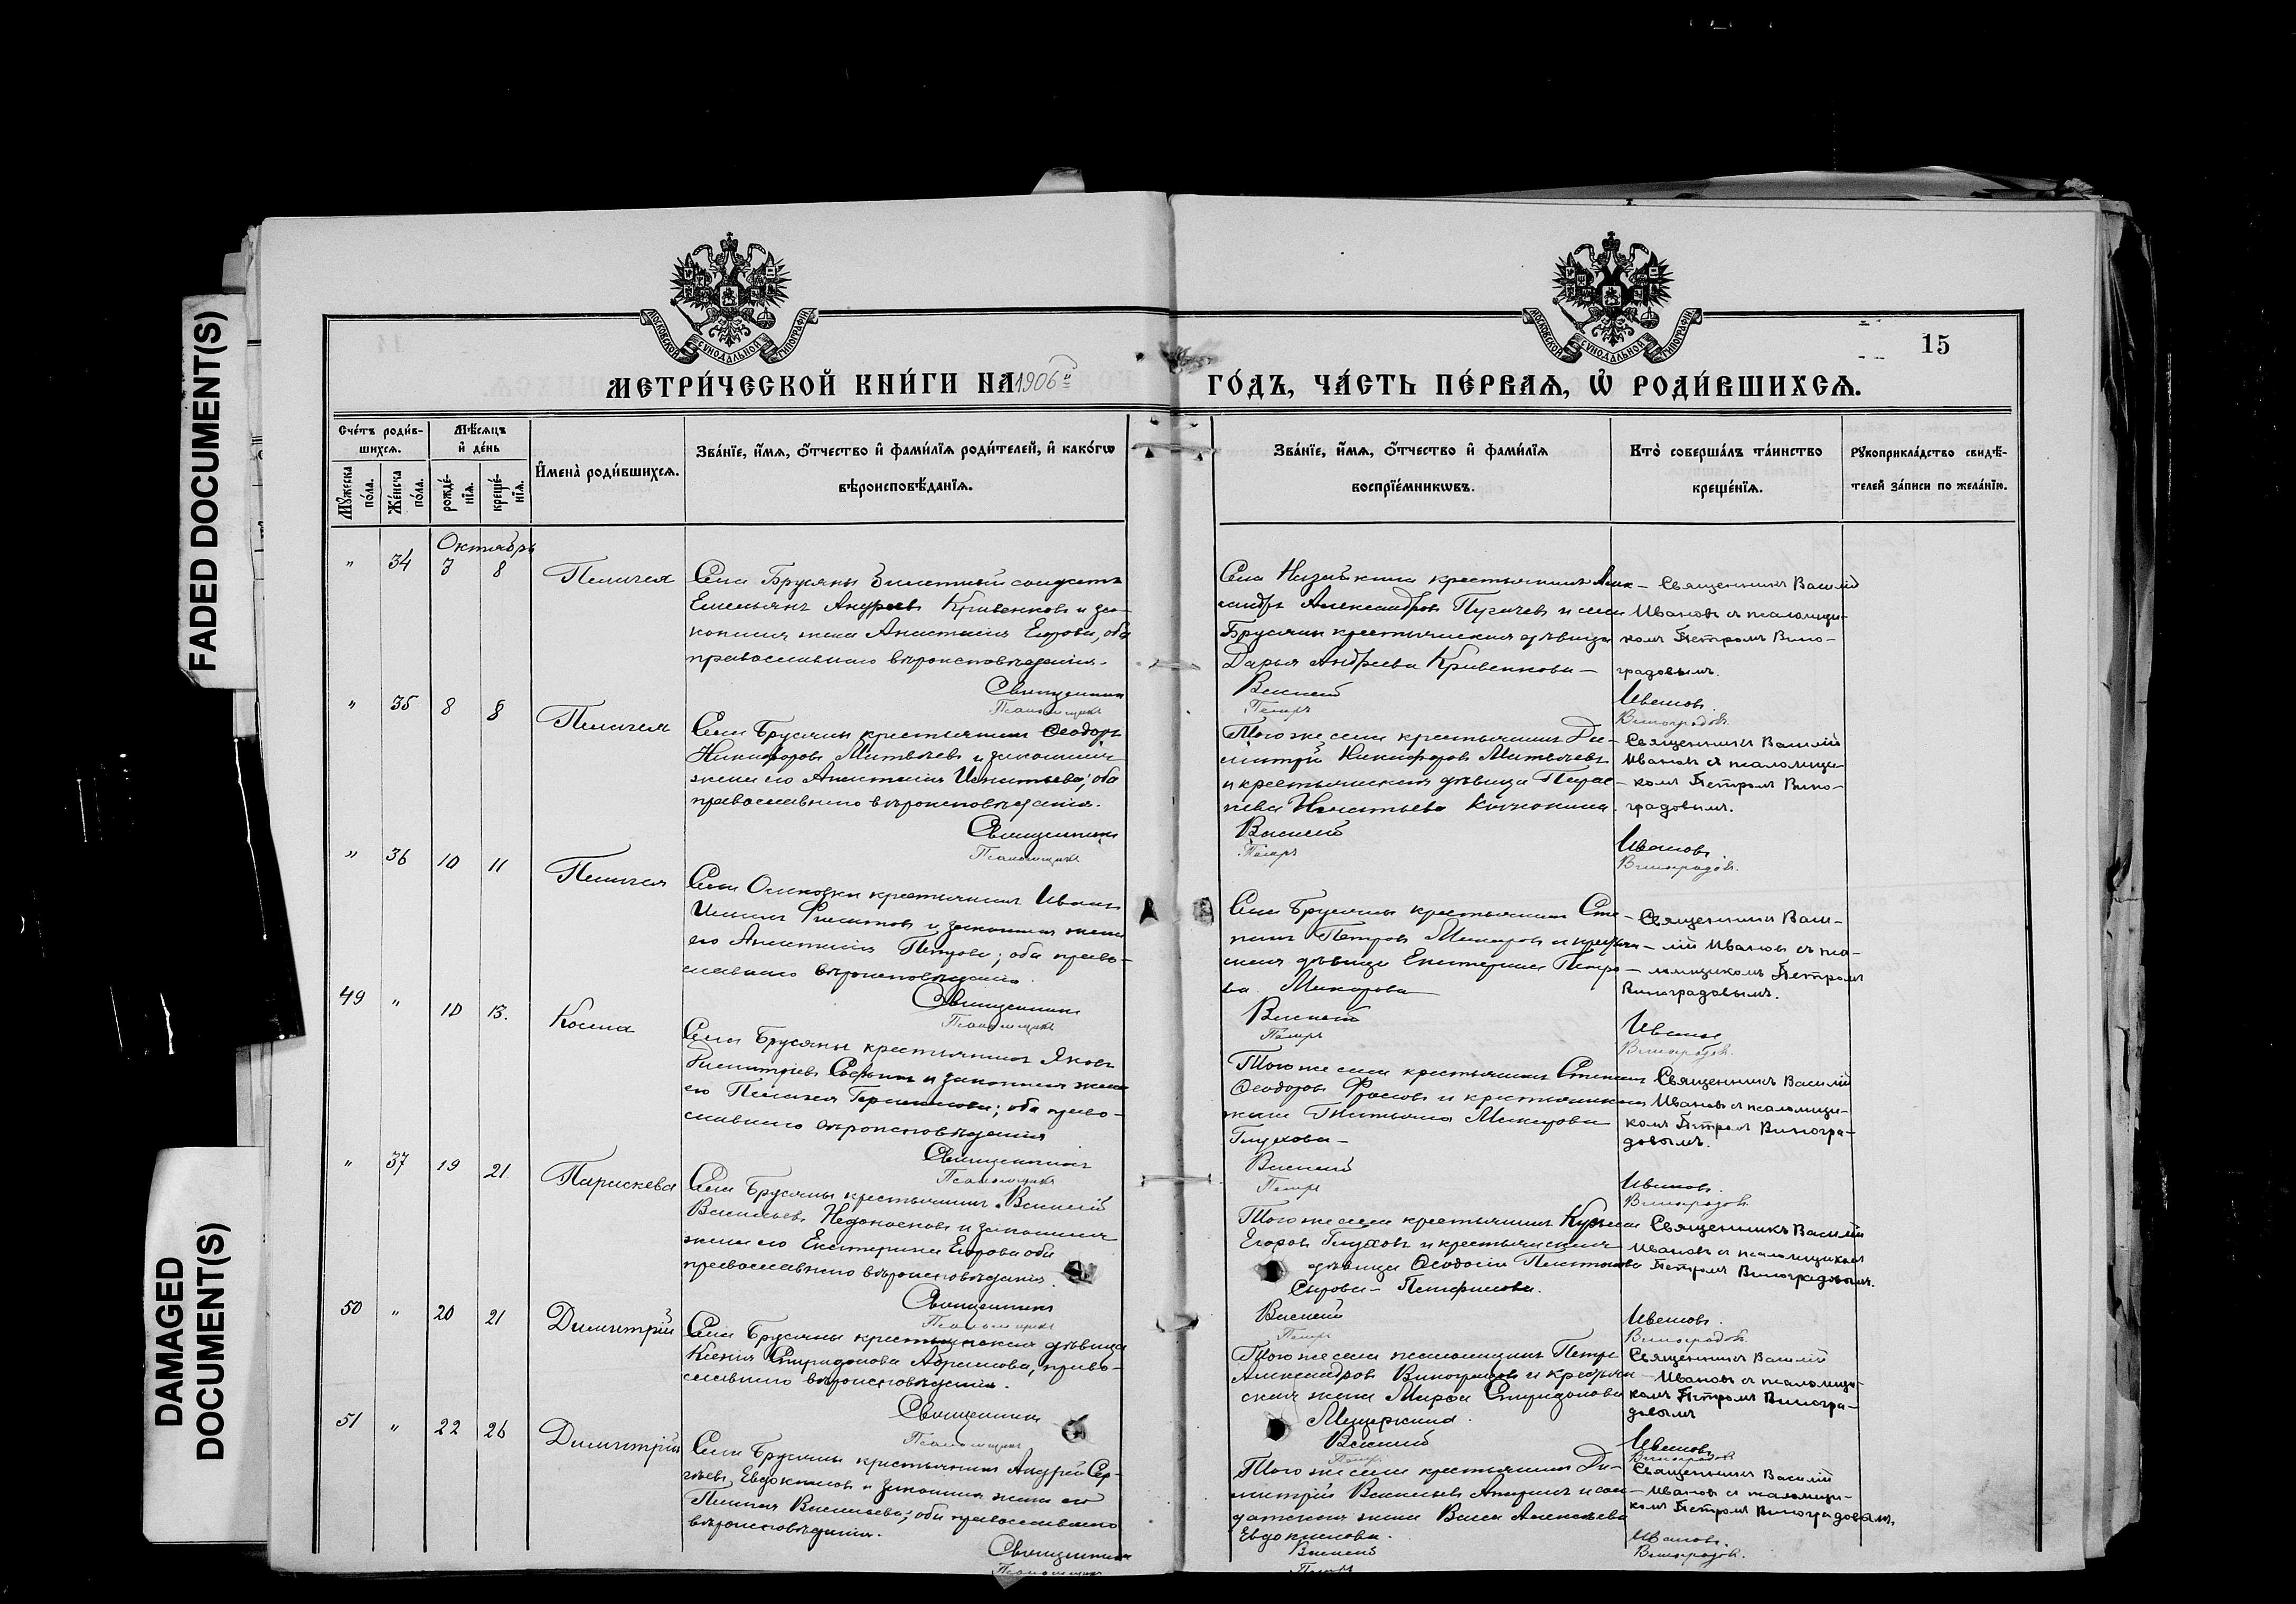 FADED DOCUMENT(S)
DAMAGED
DOCUMENT(S)
МОСКОВСКОЙ СѴНОДАЛЬНОЙ ТИПОГРАФІИ
МОСКОВСКОЙ СѴНОДАЛЬНОЙ ТИПОГРАФІИ
15
МЕТРИ́ЧЕСКОЙ КНИ́ГИ НА 1906й
ГО́ДЪ, ЧА́СТЬ ПЕ́РВАѦ, Ѡ҆ РОДИ́ВШИХСѦ.
Сче́тъ роди́в-
шихсѧ.
Мꙋ́жеска по́ла.
Же́нска по́ла.
Мѣ́сѧцъ
и҆ де́нь
рожде́-нїѧ.
креще́-нїѧ.
И҆мена̀ роди́вшихсѧ.
Зва́нїе, и҆́мѧ, ѻ҆́тчество и҆ фами́лїѧ роди́телей, и҆ како́гѡ
вѣроисповѣ́данїѧ.
Зва́нїе, и҆́мѧ, ѻ҆́тчество и҆ фами́лїѧ
воспрїе́мникѡвъ.
Кто̀ соверша́лъ та́инство
креще́нїѧ.
Рꙋкоприкла́дство свидѣ́-
телей за́писи по жела́нїю.
Октябрь
" 34 3 8 Пелагея
Села Брусяны билетный солдатъ
Емельянъ Андреевъ Кривенковъ и за-
конная жена Анастасія Егорова, оба
православнаго вѣроисповѣданія.
Священникъ
Псаломщикъ
крестьянинъ Алек-
сандръ Александровъ Пугачевъ и села
Брусяны крестьянская дѣвица
Дарья Андреева Кривенкова
Василій
Петръ
Священникъ Василій
Ивановъ съ псаломщи-
комъ Петромъ Вино-
градовымъ.
Ивановъ.
Виноградовъ.
" 35 8 8 Пелагея
Села Брусяны крестьянинъ Ѳеодоръ
Никифоровъ Матвѣевъ и законная
жена его Анастасія Игнатьева; оба
православнаго вѣроисповѣданія.
Священникъ
Псаломщикъ
Того же села крестьянинъ Ди-
митрій Никифоровъ Матвѣевъ
и крестьянская дѣвица Парас-
кева Игнатьева
Василій
Петръ
Священникъ Василій
Ивановъ съ псаломщи-
комъ Петромъ Вино-
градовымъ.
Ивановъ.
Виноградовъ.
" 36 10 11 Пелагея
Села Осиновки крестьянинъ Иванъ
и законная жена
его Анастасія Петрова; оба право-
славнаго вѣроисповѣданія.
Священникъ
Псаломщикъ
Села Брусяны крестьянинъ Сте-
панъ Петровъ Макаровъ и крестьян-
ская дѣвица Екатерина Петро-
ва Макарова
Василій
Петръ
Священникъ Васи-
лій Ивановъ съ пса-
ломщикомъ Петромъ
Виноградовымъ.
Ивановъ
Виноградовъ.
49 " 10 13. Косма
Села Брусяны крестьянинъ Яковъ
Димитріевъ и законная жена
его Пелагея Герасимова; оба право-
славнаго вѣроисповѣданія
Священникъ
Псаломщикъ
Того же села крестьянинъ Степанъ
Ѳеодоровъ Фроловъ и крестьянская
жена Татьяна Макарова
Глухова
Василій
Петръ
Священникъ Василій
Ивановъ съ псаломщи-
комъ Петромъ Виногра-
довымъ.
Ивановъ.
Виноградовъ.
" 37 19 21 Параскева
Села Брусяны крестьянинъ Василій
Васильевъ Недоносковъ и законная
жена его Екатерина Егорова оба
православнаго вѣроисповѣданія.
Священникъ
Псаломщикъ
Того же села крестьянинъ Кузьма
Егоровъ Глуховъ и крестьянская
дѣвица Ѳеодосія Платонова
Сырова
Василій
Петръ
Священникъ Василій
Ивановъ съ псаломщикомъ
Петромъ Виноградовымъ.
Ивановъ.
Виноградовъ.
50 " 20 21 Димитрій
Села Брусяны крестьянская дѣвица
Ксенія Спиридонова Абрамова, право-
славнаго вѣроисповѣданія.
Священникъ
Псаломщикъ
Того же села псаломщикъ Петръ
Александровъ Виноградовъ и крестьян-
ская жена Марѳа Спиридонова
Мещеркина.
Василій
Петръ
Священникъ Василій
Ивановъ съ псаломщи-
комъ Петромъ Виногра-
довымъ
Ивановъ
Виноградовъ
51 " 22 26 Димитрій
Села Брусяны крестьянинъ Андрей Сер-
гѣевъ Евдокимовъ и законная жена его
Пелагея Васильева; оба православнаго
вѣроисповѣданія.
Священникъ
Псаломщикъ
Того же села крестьянинъ Ди-
митрій Васильевъ и сол-
датская жена Васса Алексѣева
Евдокимова.
Василій
Петръ
Священникъ Василій
Ивановъ съ псаломщи-
комъ Петромъ Виноградовымъ.
Ивановъ.
Виноградовъ.